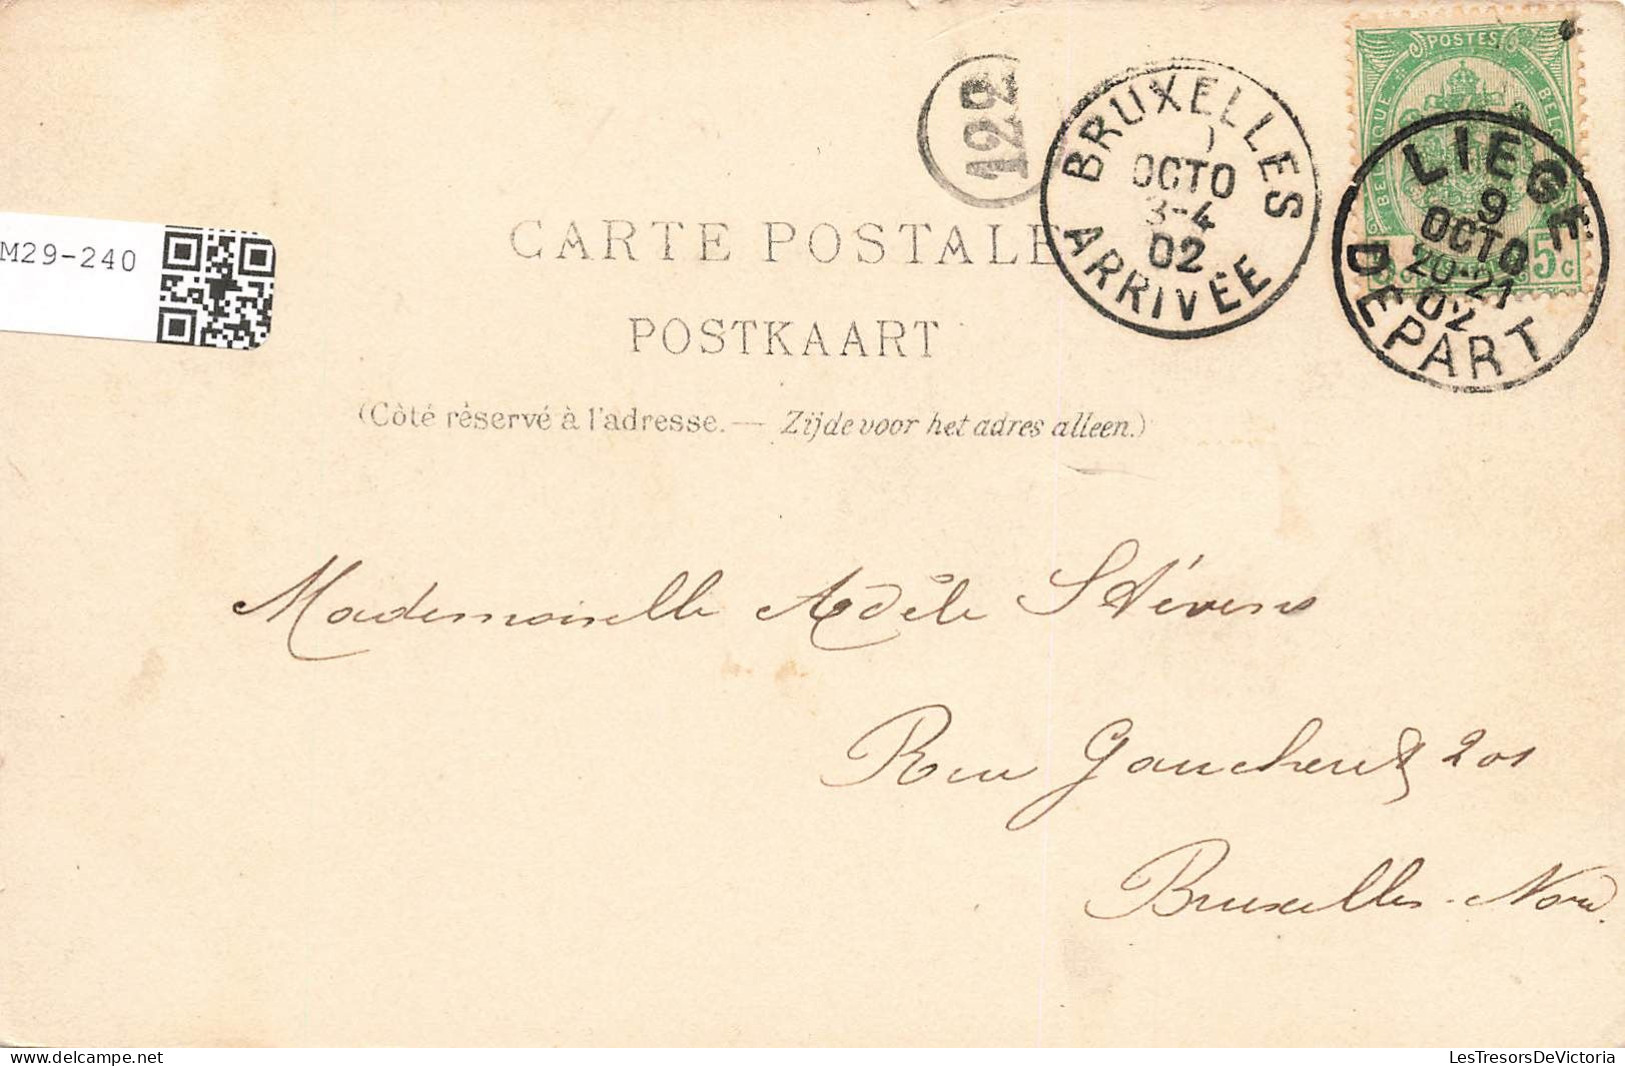 POSTES
BELGIQUE
BELG
5 C
122
BRUXELLES
OCTO
3-4
02
ARRIVÉE
LIEGE
9
OCTO
20-21
02
DEPART
M29-240
CARTE POSTALE
POSTKAART
(Côté réservé à l'adresse. — Zijde voor het adres alleen.)
Mademoiselle Adèle Stévens
Rue Gaucheret 201
Bruxelles-Nord.
LesTresorsDeVictoria